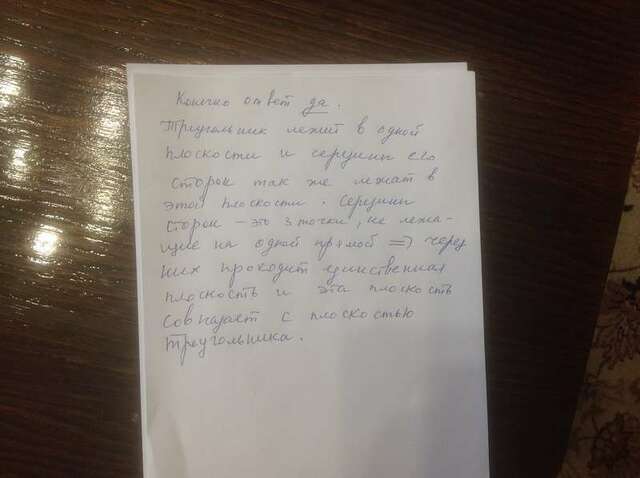 Конечно ответ да.
Треугольник лежит в одной
плоскости и середины его
сторон так же лежат в
этой плоскости. Середины
сторон - это 3 точки, не лежа-
щие на одной прямой => через
них проходит единственная
плоскость и эта плоскость
совпадает с плоскостью
треугольника.